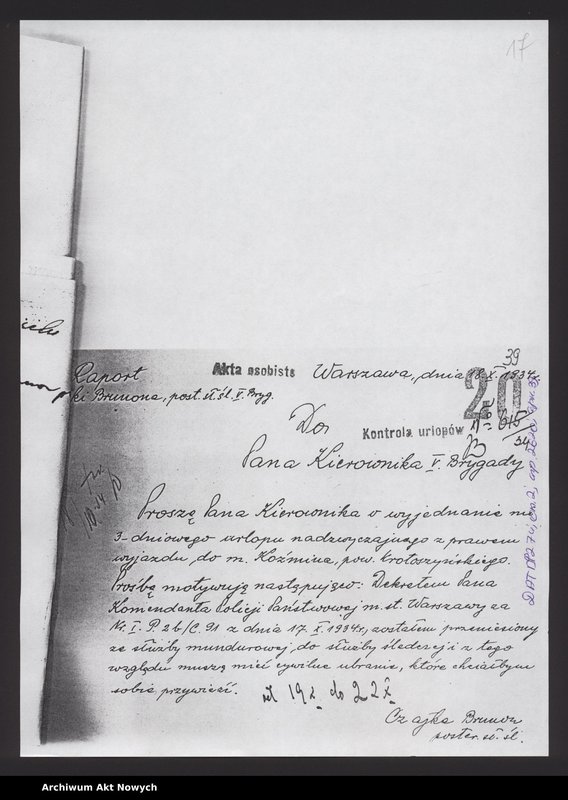 17
39
Raport
Akta osobiste
Warszawa, dnia 18.X.1934r.
ki Brunona, post. sł. śl. V. Bryg.
20
Do
Kontrola urlopów
Pana Kierownika V. Brygady
Proszę Pana Kierownika o wyjednanie mi
3-dniowego urlopu nadzwyczajnego z prawem
wyjazdu do m. Koźmina, pow. Krotoszyńskiego.
Prośbę motywuję następująco: Dekretem Pana
Komendanta Policji Państwowej m. st. Warszawy za
Nr. I. P. 2b/C. 91 z dnia 17. X. 1934r., zostałem przeniesiony
ze służby mundurowej, do służby śledczej i z tego
względu muszę mieć cywilne ubranie, które chciałbym
sobie przywieźć. od 19 X do 22 X
Czajka Brunon
poster. sł. śl.
Archiwum Akt Nowych